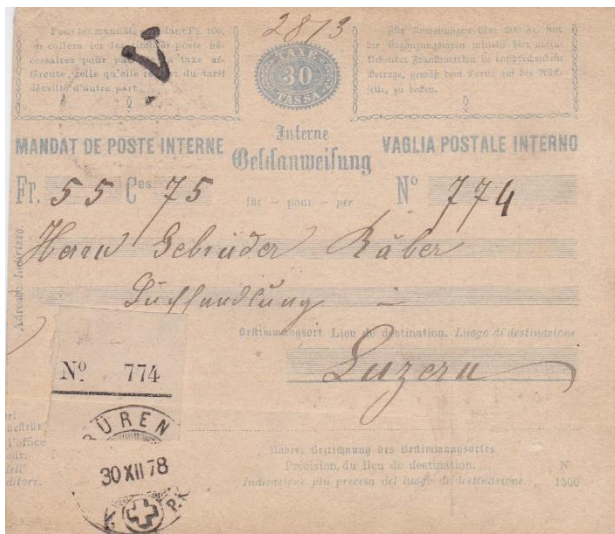 2813
Pour les mandats
on collera ici les timbres-poste né-
cessaires pour taxe af-
férente, telle qu'elle du tarif
détaillé d'autre part.
TAXE
30
TASSA
Für Anweisungen über
die Ergänzungstaxen mittelst
Frankomarken in entsprechendem
Betrage, gemäß dem Tarif auf der Rück-
seite, zu
MANDAT DE POSTE INTERNE
Interne
Geldanweisung
VAGLIA POSTALE INTERNO
Fr. 55 Ces 75
für – pour – per
No 774
Herrn Gebrüder Räber
Buchhandlung
Bestimmungsort. Lieu de destination. Luogo di destinazione
Luzern
No 774
BÜREN
30 XII 78
Nähere Bezeichnung des Bestimmungsortes
Précision du lieu de destination.
Indicazione più precisa del luogo di destinazione
No
1500
l'office